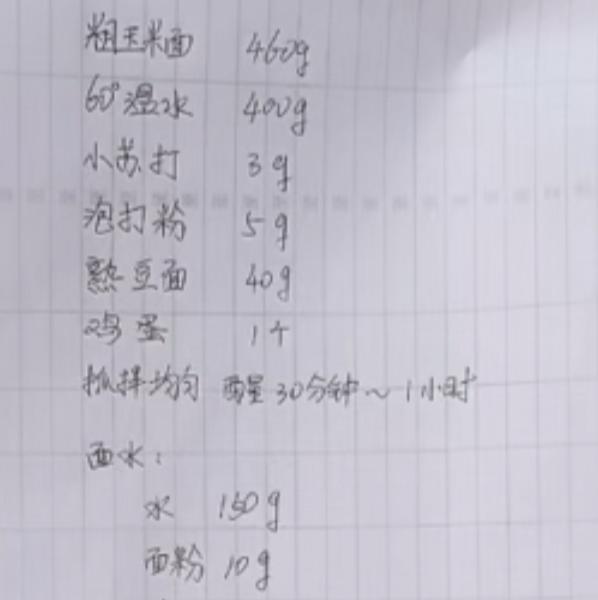 粗玉米面 460g
60°温水 400g
小苏打 3g
泡打粉 5g
熟豆面 40g
鸡蛋 1个
抓拌均匀 醒30分钟~1小时
面水:
水 150g
面粉 10g